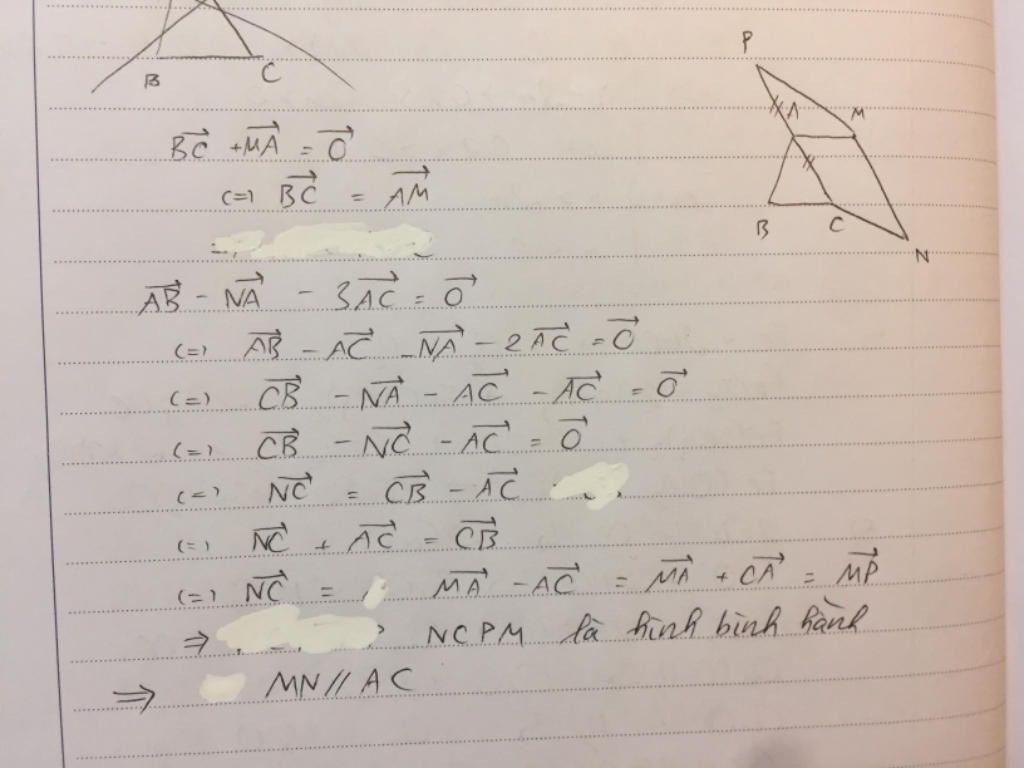 B C
P
A M
B C
N
$\overrightarrow{BC} + \overrightarrow{MA} = \overrightarrow{O}$
(=) $\overrightarrow{BC} = \overrightarrow{AM}$
$\overrightarrow{AB} - \overrightarrow{NA} - 3\overrightarrow{AC} = \overrightarrow{O}$
(=) $\overrightarrow{AB} - \overrightarrow{AC} - \overrightarrow{NA} - 2\overrightarrow{AC} = \overrightarrow{O}$
(=) $\overrightarrow{CB} - \overrightarrow{NA} - \overrightarrow{AC} - \overrightarrow{AC} = \overrightarrow{O}$
(=) $\overrightarrow{CB} - \overrightarrow{NC} - \overrightarrow{AC} = \overrightarrow{O}$
(=) $\overrightarrow{NC} = \overrightarrow{CB} - \overrightarrow{AC}$
(=) $\overrightarrow{NC} + \overrightarrow{AC} = \overrightarrow{CB}$
(=) $\overrightarrow{NC} = \overrightarrow{MA} - \overrightarrow{AC} = \overrightarrow{MA} + \overrightarrow{CA} = \overrightarrow{MP}$
⇒ NCPM là hình bình hành
⇒ MN // AC